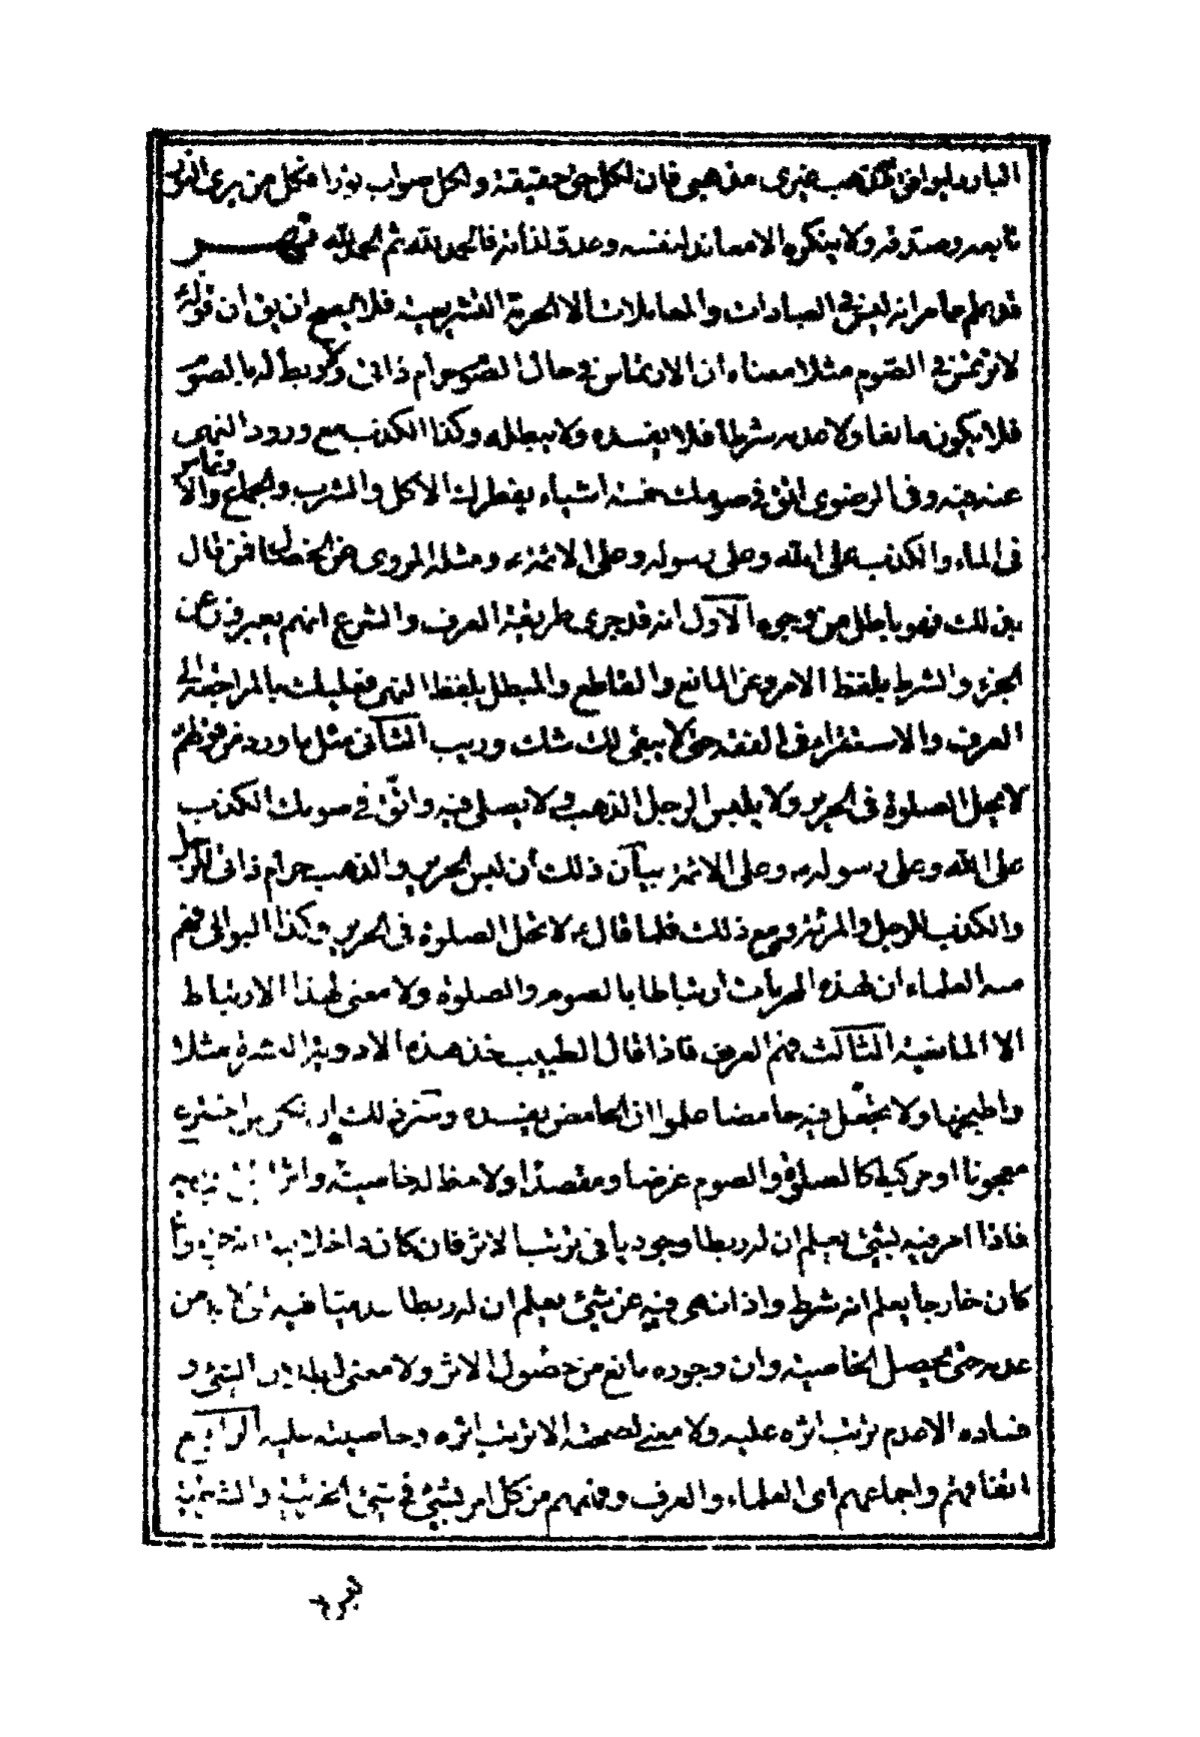 البارد لموافق المذهب غيري مذهبي فان لكل حق حقيقة ولكل صواب نورا فكل من يرى
تابعه وصدقه ولا ينكره الا معاند لنفسه وعدو لذاته فالحمد لله ثم الحمد لله
قد علم مما مر انه ليس في العبادات والمعاملات الا الحرمة التشريعية فلا يصح ان يق ان قوله
لا ترتمس في الصوم مثلا معناه ان الارتماس في حال الصوم حرام ذاتي ولا ربط له بالصوم
فلا يكون مانعا ولا عدمه شرطا فلا يفسده ولا يبطله وكذا الكذب مع ورود النهي
عنه فيه وفي الرضوي اتق في صومك خمسة اشياء يفطرك الاكل والشرب والجماع والارتماس
في الماء والكذب على الله وعلى رسوله وعلى الائمة ومثله المروي عن الخصال فمن قال
بغير ذلك فهو باطل من وجوه الاول انه قد جرى طريقة العرف والشرع انهم يعبرون عن
الجزء والشرط بلفظ الامر وعن المانع والقاطع والمبطل بلفظ النهي فعليك بالمراجعة الى
العرف والاستقراء في الفقه حتى لا يبقى لك شك وريب الثاني مثل ما ورد من قولهم
لا تحل الصلوة في الحرير ولا يلبس الرجل الذهب ولا يصلي فيه واتق في صومك الكذب
على الله وعلى رسوله وعلى الائمة بيان ذلك ان لبس الحرير والذهب حرام ذاتي للرجل
والكذب للرجل والمرئة ومع ذلك فلما قال لا تحل الصلوة في الحرير وكذا البواقي فهم
منه العلماء ان لهذه الحرمات ارتباطا بالصوم والصلوة ولا معنى لهذا الارتباط
الا المانعية الثالث فهم العرف فاذا قال الطبيب خذ هذه الادوية العشرة مثلا
واطبخها ولا تجعل فيه حامضا علموا ان الحامض يفسده
معجونا او مركبا كالصلوة والصوم غرضا ومقصدا ولاحظ له خاصية واثرا
فاذا امر فيه بشيء يعلم ان له ربطا وجوديا في ترتب الاثر فان كان داخلا فيه انه جزء وان
كان خارجا يعلم انه شرط واذا نهى فيه عن شيء يعلم ان له ربطا لا بد من
عدمه حتى يحصل الخاصية وان وجوده مانع من حصول الاثر ولا معنى لبطلان الشيء و
فساده الا عدم ترتب اثره عليه ولا معنى لصحته الا ترتب اثره وخاصيته عليه الرابع
اتفاقهم واجماعهم اي العلماء والعرف وفهمهم من كل امر بشيء في شيء الجزئية والشرطية